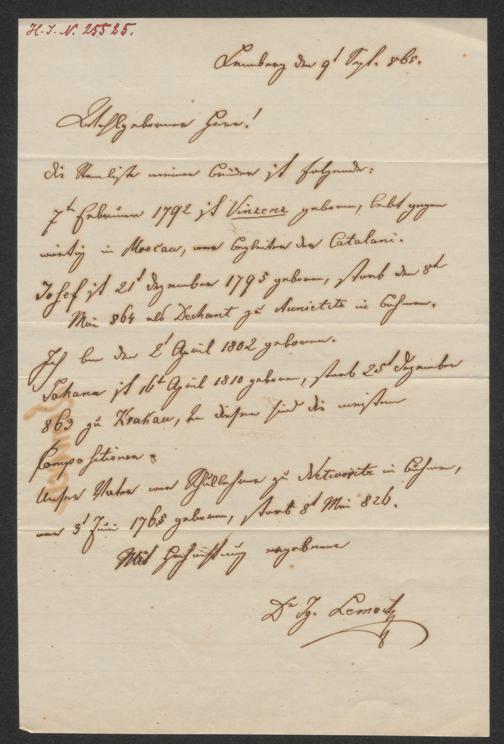 H. I. N. 25525.
Lemberg den 9t Sept. 865.
Wohlgeborner Herr!
die Namliste meiner Brüder ist folgende:
7tn Februar 1792 ist Vinzenz geboren, lebt gegen
wärtig in Moscau, war Begleiter der Catalani.
Josef ist 21t Dezember 1795 geboren, starb den 8tn
Mai 864 als Dechant zu Aunietitz in Böhmen.
Ich bin den 2t April 1802 geboren.
Johann ist 16tn April 1810 geboren, starb 25t Dezember
863 zu Krakau, von diesem sind die meisten
Compositionen.
Unser Vater war Schullehrer zu Networitz in Böhmen,
war 3t Juni 1765 geboren, starb 8t Mai 826.
Mit Hochachtung ergebener
Dr Ig. Lemoch